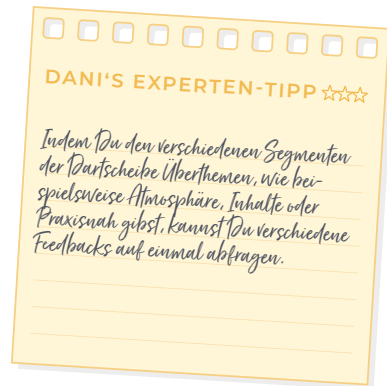 DANI‘S EXPERTEN-TIPP
Indem Du den verschiedenen Segmenten
der Dartscheibe Überthemen, wie bei-
spielsweise Atmosphäre, Inhalte oder
Praxisnah gibst, kannst Du verschiedene
Feedbacks auf einmal abfragen.